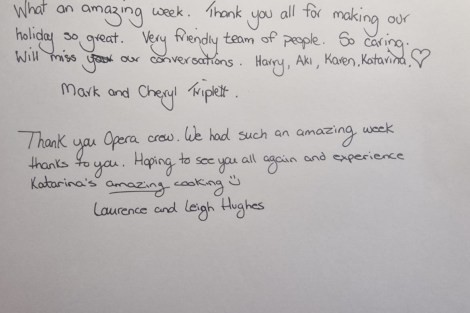 What an amazing week. Thank you all for making our
holiday so great. Very friendly team of people. So caring.
Will miss your our conversations. Harry, Aki, Karen, Katarina. ♡
Mark and Cheryl Triplett.
Thank you Opera crew. We had such an amazing week
thanks to you. Hoping to see you all again and experience
Katarina's amazing cooking ☺
Laurence and Leigh Hughes